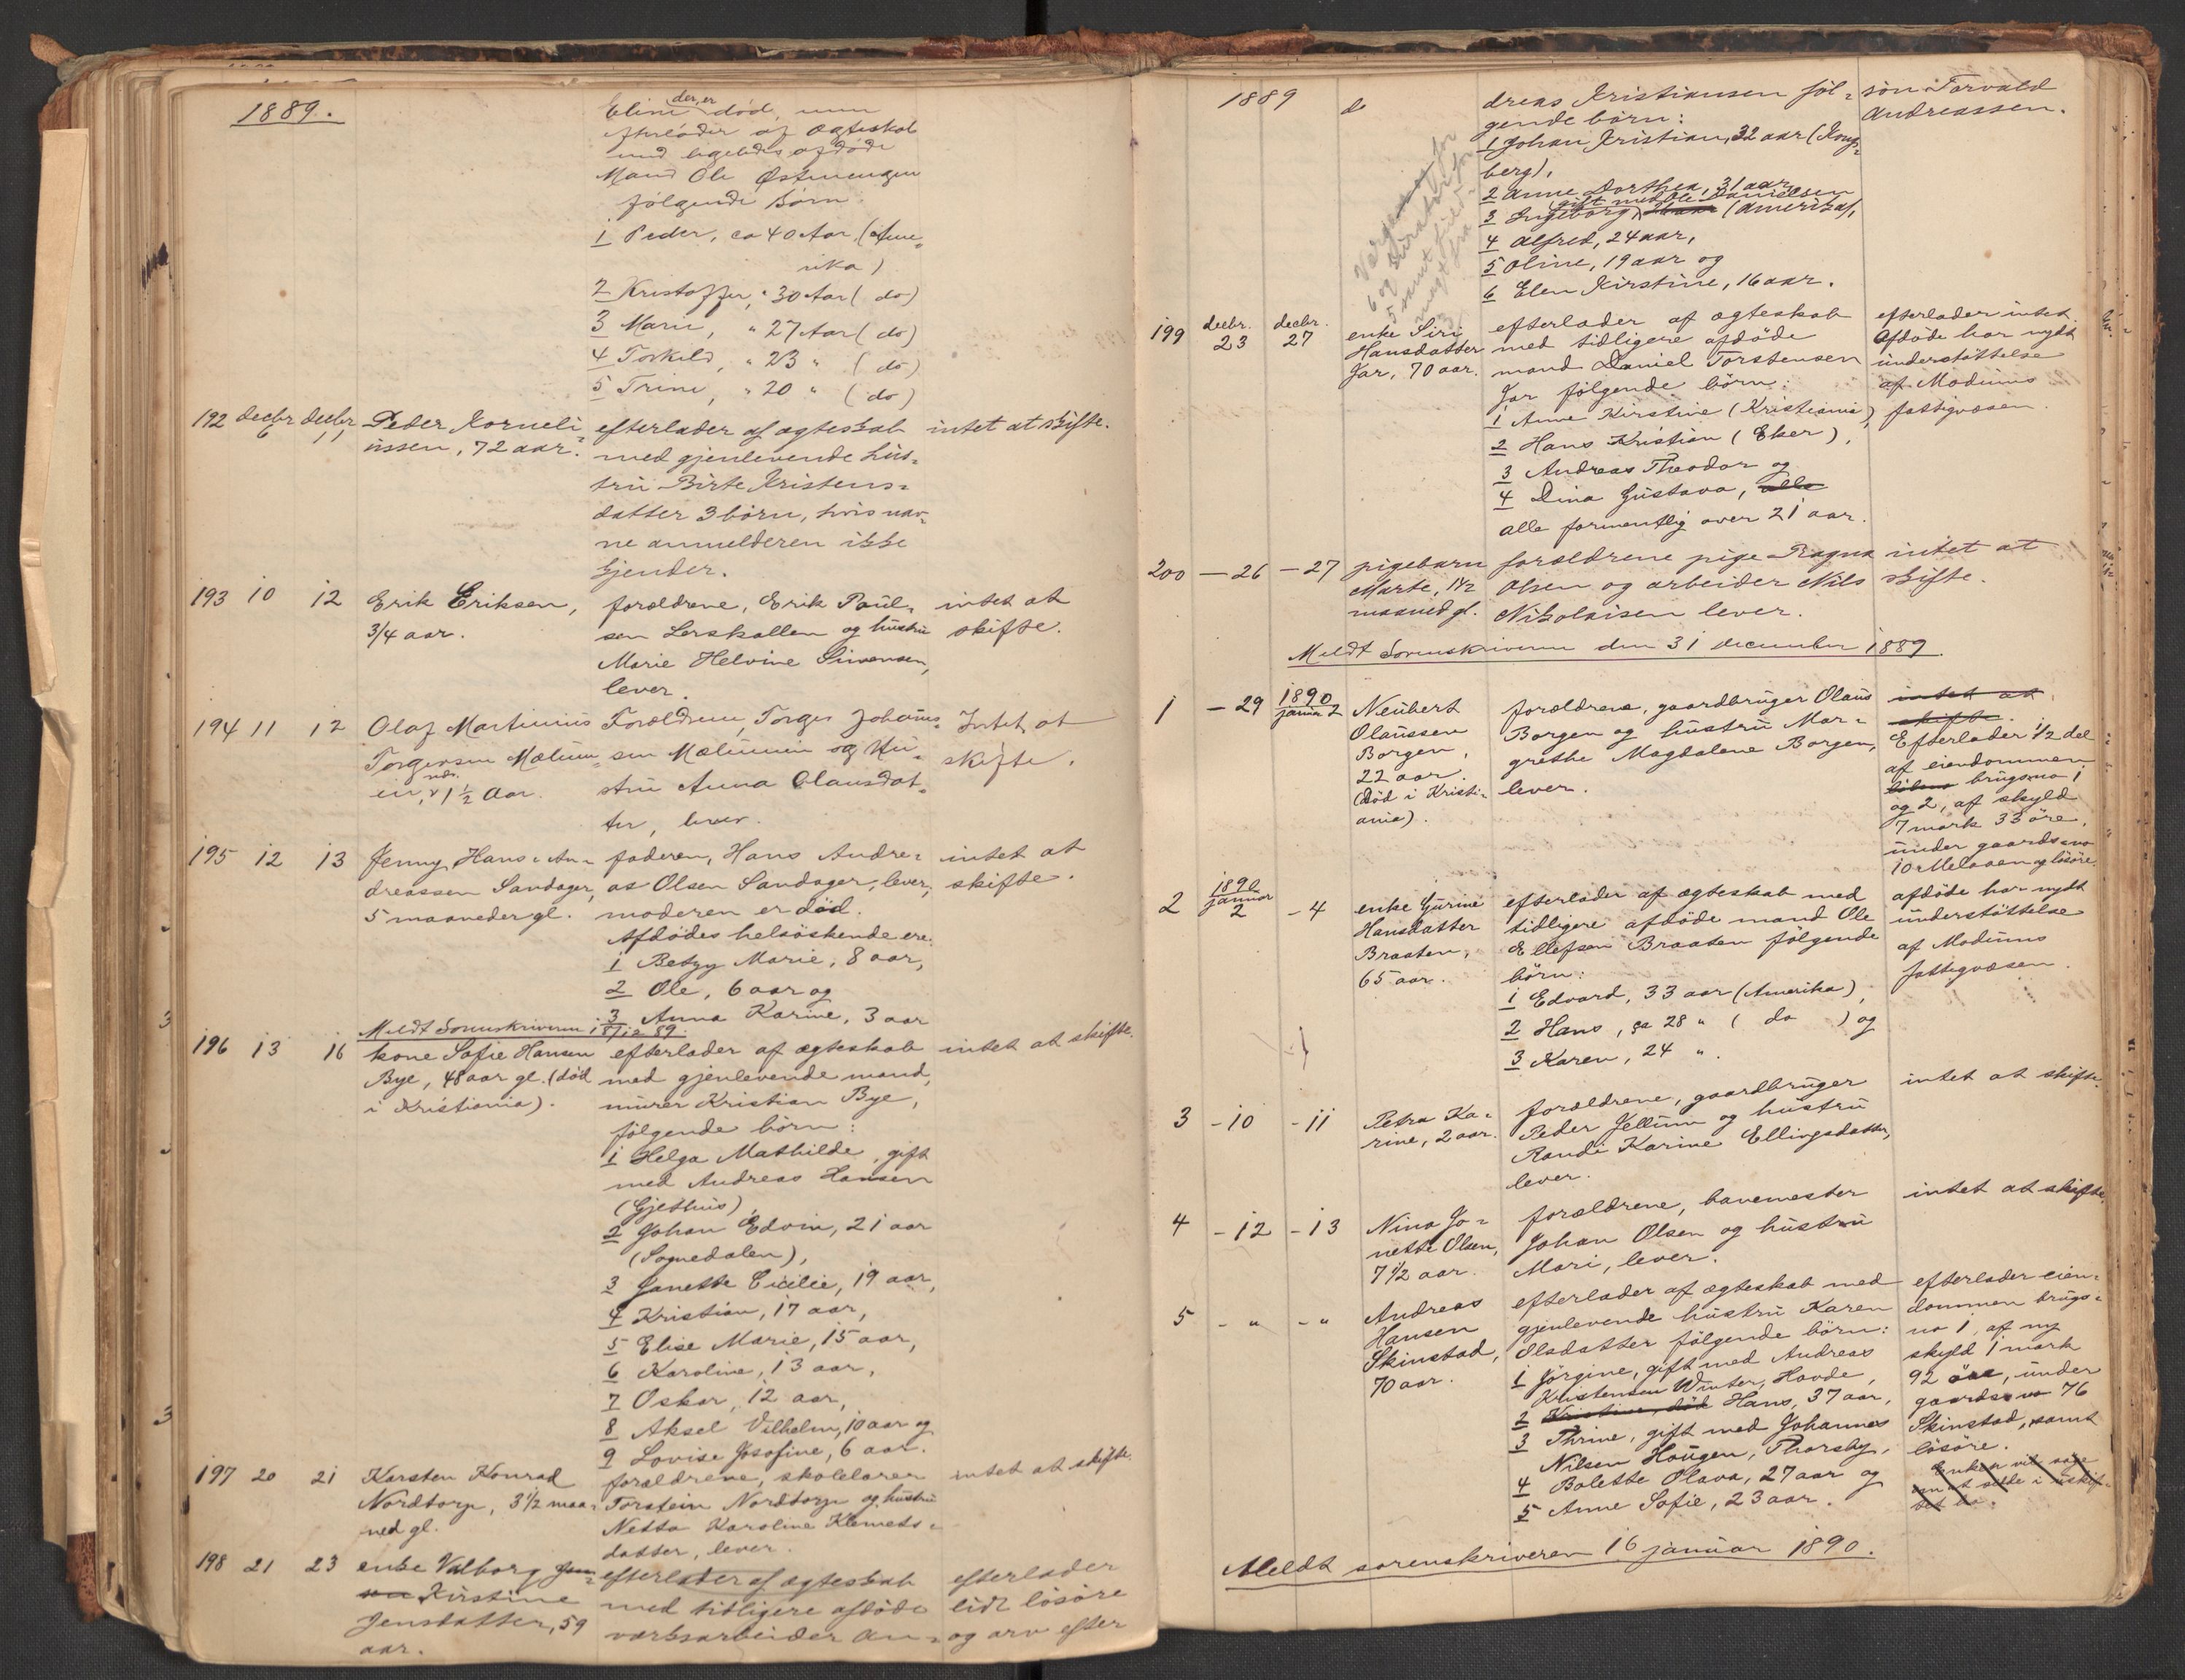 1889.
der, er
Eline død, men
efterlader af Ægteskab
med ligeledes afdøde
Mand Ole Østmengen
følgende Børn
1 Peder, ca 40 Aar (Ame-
rika)
2 Kristoffer, " 30 Aar (do)
3 Marie, " 27 Aar (do)
4 Torkild, " 23 " (do)
5 Trine, " 20 " (do)
192 decbr 6 decbr 11 Peder Korneli- efterlader af ægteskab intet at skifte.
ussen, 72 aar. med gjenlevende hus-
tru Birte Kristens-
datter 3 børn, hvis nav-
ne anmelderen ikke
kjender.
193 10 12 Erik Eriksen, forældrene, Erik Paul- intet at
3/4 aar. sen Lerskallen og hustru skifte.
Marie Helvine Simensen,
lever.
194 11 12 Olaf Martinius Forældrene, Torger Johannes- Intet at
Torgersen Mælum- sen Mælumein og Hu- skifte.
ein, 1 1/2 Aar. stru Anna Olausdat-
ter, lever.
195 12 13 Jenny Hans-An- faderen, Hans Andre- intet at
dreassen Sandager, as Olsen Sandager, lever, skifte.
5 maaneder gl. moderen er død.
Afdødes helsøskende ere:
1 Betzy Marie, 8 aar,
2 Ole, 6 aar og
3 Anna Karine, 3 aar
Meldt Sorenskriveren 18/12 89.
196 13 16 kone Sofie Hansen efterlader af ægteskab intet at skifte.
Bye, 48 aar gl. (død med gjenlevende mand,
i Kristiania). murer Kristian Bye,
følgende børn:
1 Helga Mathilde, gift
med Andreas Hansen
(Gjethus),
2 Johan Edvin, 21 aar
(Sognedalen),
3 Janette Cicilie, 19 aar,
4 Kristian, 17 aar,
5 Elise Marie, 15 aar,
6 Karoline, 13 aar,
7 Oskar, 12 aar,
8 Aksel Vilhelm, 10 aar og
9 Lovise Josofine, 6 aar.
197 20 21 Karsten Konrad forældrene, skolelærer intet at skifte.
Nordtorp, 3 1/2 maa- Torstein Nordtorp og hustru
ned gl. Netta Karoline Klemets-
datter, lever.
198 21 23 enke Valborg Jen- efterlader af ægteskab efterlader
Kirstine med tidligere afdøde lidt løsøre
Jensdatter, 59 værksarbeider An- og arv efter
aar.
1889 do dreas Kristiansen føl- søn Torvald
gende børn: Andreassen.
1 Johan Kristian, 32 aar (Kongs-
berg),
2 Anne Dorthea, 31 aar
gift med Ole Danielsen
3 Ingeborg (Amerika),
4 Alfred, 24 aar,
5 Oline, 19 aar og
6 Elen Kirstine, 16 aar.
Værge for
6 og kurator for
5 samt fuld-
magt fra
3
199 decbr. 23 decbr. 27 enke Siri efterlader af ægteskab efterlader intet.
Hansdatter med tidligere afdøde Afdøde har nydt
Jar, 70 aar. mand Daniel Torstensen understøttelse
Jar følgende børn: af Modums
1 Anne Kirstine (Kristiania), fattigvæsen.
2 Hans Kristian (Eker),
3 Andreas Theodor og
4 Dina Gustava, alle
alle formentlig over 21 aar.
200 - 26 - 27 pigebarn forældrene pige Ragna intet at
Marte, 1 1/2 Olsen og arbeider Nils skifte.
maaned gl. Nikolaisen lever.
Meldt Sorenskriveren den 31 december 1889.
1 - 29 1890 januar 2 Neubert forældrene, gaardbruger Olaus intet at
Olaussen Borgen og hustru Mar- skifte.
Borgen, grethe Magdalene Borgen, Efterlader 1/2 del
22 aar. lever. af eiendommen
(død i Kristi- brugsno 1
ania). og 2, af skyld
7 mark 33 øre,
under gaardsno
10 Melaaen og løsøre.
2 1890 januar 2 - 4 enke Gurine efterlader af ægteskab med afdøde har nydt
Hansdatter tidligere afdøde mand Ole understøttelse
Braaten, Ellefsen Braaten følgende af Modums
65 aar. børn: fattigvæsen.
1 Edvard, 33 aar (Amerika),
2 Hans, ca 28 " ( do ) og
3 Karen, 24 ".
3 - 10 - 11 Petra Ka- forældrene, gaardbruger intet at skifte.
rine, 2 aar. Peder Jellum og hustru
Randi Karine Ellingsdatter,
lever.
4 - 12 - 13 Nina Jo- forældrene, banemester intet at skifte.
nette Olsen, Johan Olsen og hustru
7 1/2 aar. Mari, lever.
5 - " - " Andreas efterlader af ægteskab med efterlader eien-
Hansen gjenlevende hustru Karen dommen brugs-
Skinstad, Olsdatter følgende børn: no 1, af ny
70 aar. 1 Jørgine, gift med Andreas skyld 1 mark
Kristensen Winter, Hovde, 92 øre, under
2 Kristine, død Hans, 37 aar, gaardsno 76
3 Thrine, gift med Johannes Skinstad, samt
Nilsen Haugen, Thorsby, løsøre.
4 Bolette Olava, 27 aar og Enken vil søge
5 Anne Sofie, 23 aar. om at sidde i uskif-
tet bo.
Meldt sorenskriveren 16 januar 1890.